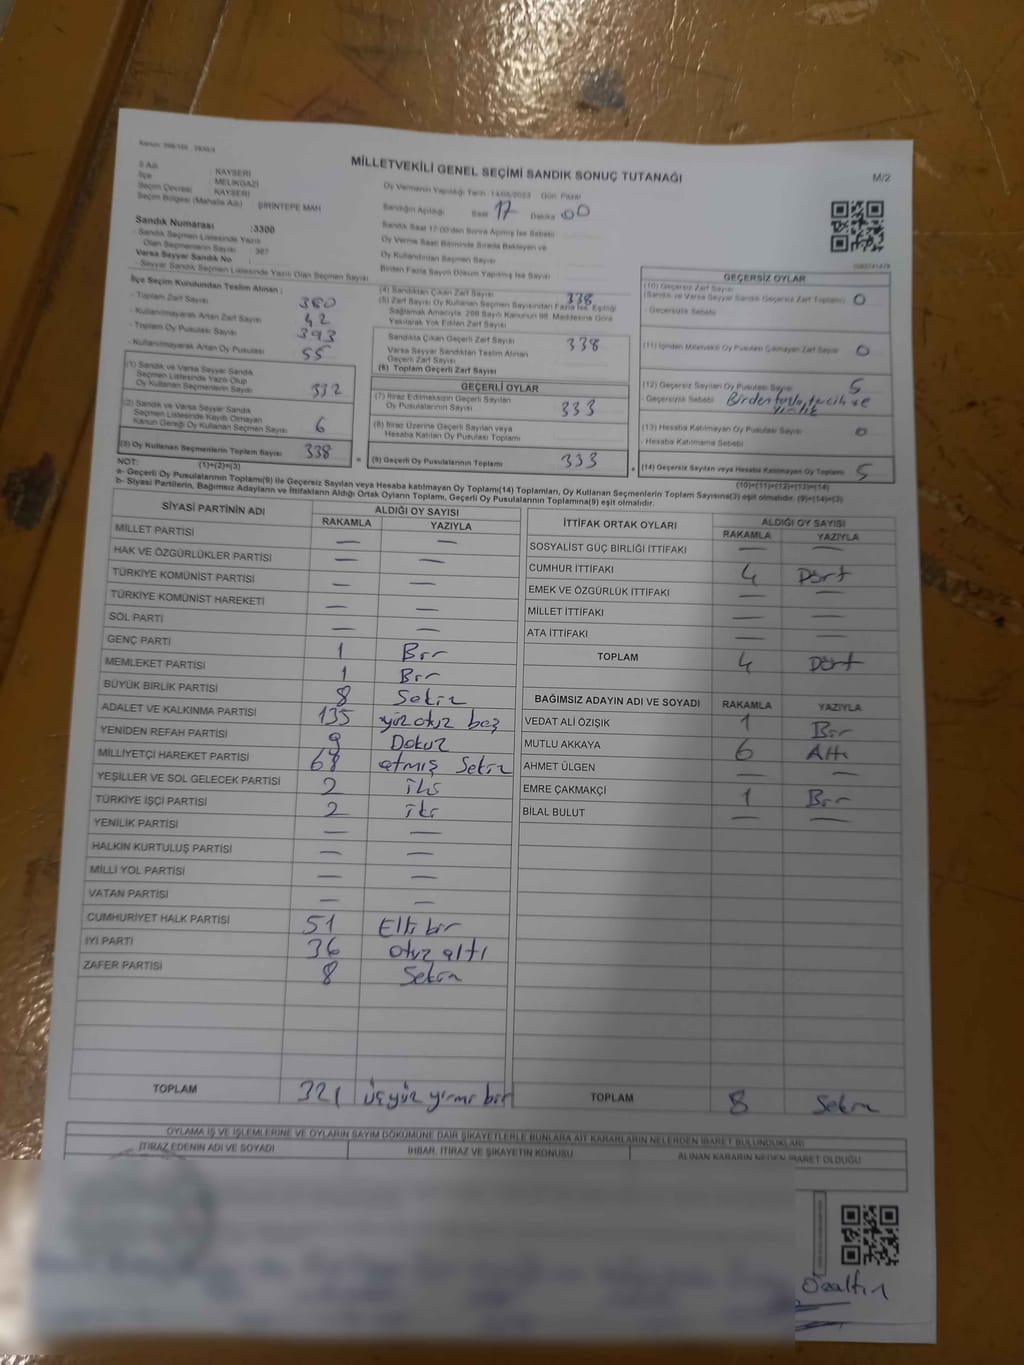 MİLLETVEKİLİ GENEL SEÇİMİ SANDIK SONUÇ TUTANAĞI
M/2
İl Adı : KAYSERİ
İlçe : MELİKGAZİ
Seçim Çevresi : KAYSERİ
Seçim Bölgesi (Mahalle Adı) : ŞİRİNTEPE MAH
Oy Vermenin Yapıldığı Tarih : 14/05/2023 Gün: Pazar
Sandığın Açıldığı Saat 17 Dakika 00
Sandık Numarası :3300
- Sandık Seçmen Listesinde Yazılı
Olan Seçmenlerin Sayısı : 367
Varsa Seyyar Sandık No :
- Seyyar Sandık Seçmen Listesinde Yazılı Olan Seçmen Sayısı
Sandık Saat 17:00'den Sonra Açılmış İse Sebebi
Oy Verme Saati Bitiminde Sırada Bekleyen ve
Oy Kullandırılan Seçmen Sayısı
Birden Fazla Sayım Döküm Yapılmış İse Sayısı
İlçe Seçim Kurulundan Teslim Alınan :
- Toplam Zarf Sayısı 380
- Kullanılmayarak Artan Zarf Sayısı 42
- Toplam Oy Pusulası Sayısı 393
- Kullanılmayarak Artan Oy Pusulası 55
(1) Sandık ve Varsa Seyyar Sandık
Seçmen Listesinde Yazılı Olup
Oy Kullanan Seçmenlerin Sayısı 332
(2) Sandık ve Varsa Seyyar Sandık
Seçmen Listesinde Kayıtlı Olmayan
Kanun Gereği Oy Kullanan Seçmen Sayısı 6
(3) Oy Kullanan Seçmenlerin Toplam Sayısı 338
(1)+(2)=(3)
(4) Sandıktan Çıkan Zarf Sayısı 338
(5) Zarf Sayısı Oy Kullanan Seçmen Sayısından Fazla İse, Eşitliği
Sağlamak Amacıyla, 298 Sayılı Kanunun 98. Maddesine Göre
Yakılarak Yok Edilen Zarf Sayısı
Sandıkta Çıkan Geçerli Zarf Sayısı 338
Varsa Seyyar Sandıktan Teslim Alınan
Geçerli Zarf Sayısı
(6) Toplam Geçerli Zarf Sayısı
GEÇERLİ OYLAR
(7) İtiraz Edilmeksizin Geçerli Sayılan
Oy Pusulalarının Sayısı 333
(8) İtiraz Üzerine Geçerli Sayılan veya
Hesaba Katılan Oy Pusulası Toplamı
(9) Geçerli Oy Pusulalarının Toplamı 333
GEÇERSİZ OYLAR
(10) Geçersiz Zarf Sayısı
(Sandık ve Varsa Seyyar Sandık Geçersiz Zarf Toplamı) 0
- Geçersizlik Sebebi
(11) İçinden Milletvekili Oy Pusulası Çıkmayan Zarf Sayısı 0
(12) Geçersiz Sayılan Oy Pusulası Sayısı 5
- Geçersizlik Sebebi Birden fazla tercih ve
(13) Hesaba Katılmayan Oy Pusulası Sayısı 0
- Hesaba Katılmama Sebebi
(14) Geçersiz Sayılan veya Hesaba Katılmayan Oy Toplamı 5
(10)+(11)+(12)+(13)=(14)
NOT:
a- Geçerli Oy Pusulalarının Toplamı(9) ile Geçersiz Sayılan veya Hesaba katılmayan Oy Toplamı(14) Toplamları, Oy Kullanan Seçmenlerin Toplam Sayısına(3) eşit olmalıdır. (9)+(14)=(3)
b- Siyasi Partilerin, Bağımsız Adayların ve İttifakların Aldığı Ortak Oyların Toplamı, Geçerli Oy Pusulalarının Toplamına(9) eşit olmalıdır.
SİYASİ PARTİNİN ADI ALDIĞI OY SAYISI
RAKAMLA YAZIYLA
MİLLET PARTİSİ — —
HAK VE ÖZGÜRLÜKLER PARTİSİ — —
TÜRKİYE KOMÜNİST PARTİSİ — —
TÜRKİYE KOMÜNİST HAREKETİ — —
SOL PARTİ — —
GENÇ PARTİ 1 Bir
MEMLEKET PARTİSİ 1 Bir
BÜYÜK BİRLİK PARTİSİ 8 Sekiz
ADALET VE KALKINMA PARTİSİ 135 yüz otuz beş
YENİDEN REFAH PARTİSİ 9 Dokuz
MİLLİYETÇİ HAREKET PARTİSİ 68 atmış Sekiz
YEŞİLLER VE SOL GELECEK PARTİSİ 2 iki
TÜRKİYE İŞÇİ PARTİSİ 2 iki
YENİLİK PARTİSİ — —
HALKIN KURTULUŞ PARTİSİ — —
MİLLİ YOL PARTİSİ — —
VATAN PARTİSİ — —
CUMHURİYET HALK PARTİSİ 51 Elli bir
İYİ PARTİ 36 otuz altı
ZAFER PARTİSİ 8 Sekiz
TOPLAM 321 üçyüz yirmi bir
İTTİFAK ORTAK OYLARI ALDIĞI OY SAYISI
RAKAMLA YAZIYLA
SOSYALİST GÜÇ BİRLİĞİ İTTİFAKI — —
CUMHUR İTTİFAKI 4 Dört
EMEK VE ÖZGÜRLÜK İTTİFAKI — —
MİLLET İTTİFAKI — —
ATA İTTİFAKI — —
TOPLAM 4 Dört
BAĞIMSIZ ADAYIN ADI VE SOYADI RAKAMLA YAZIYLA
VEDAT ALİ ÖZIŞIK 1 Bir
MUTLU AKKAYA 6 Altı
AHMET ÜLGEN — —
EMRE ÇAKMAKÇİ 1 Bir
BİLAL BULUT — —
TOPLAM 8 Sekiz
OYLAMA İŞ VE İŞLEMLERİNE VE OYLARIN SAYIM DÖKÜMÜNE DAİR ŞİKAYETLERLE BUNLARA AİT KARARLARIN NELERDEN İBARET BULUNDUKLARI
İTİRAZ EDENİN ADI VE SOYADI İHBAR, İTİRAZ VE ŞİKAYETİN KONUSU ALINAN KARARIN NEDEN İBARET OLDUĞU
Özaltın